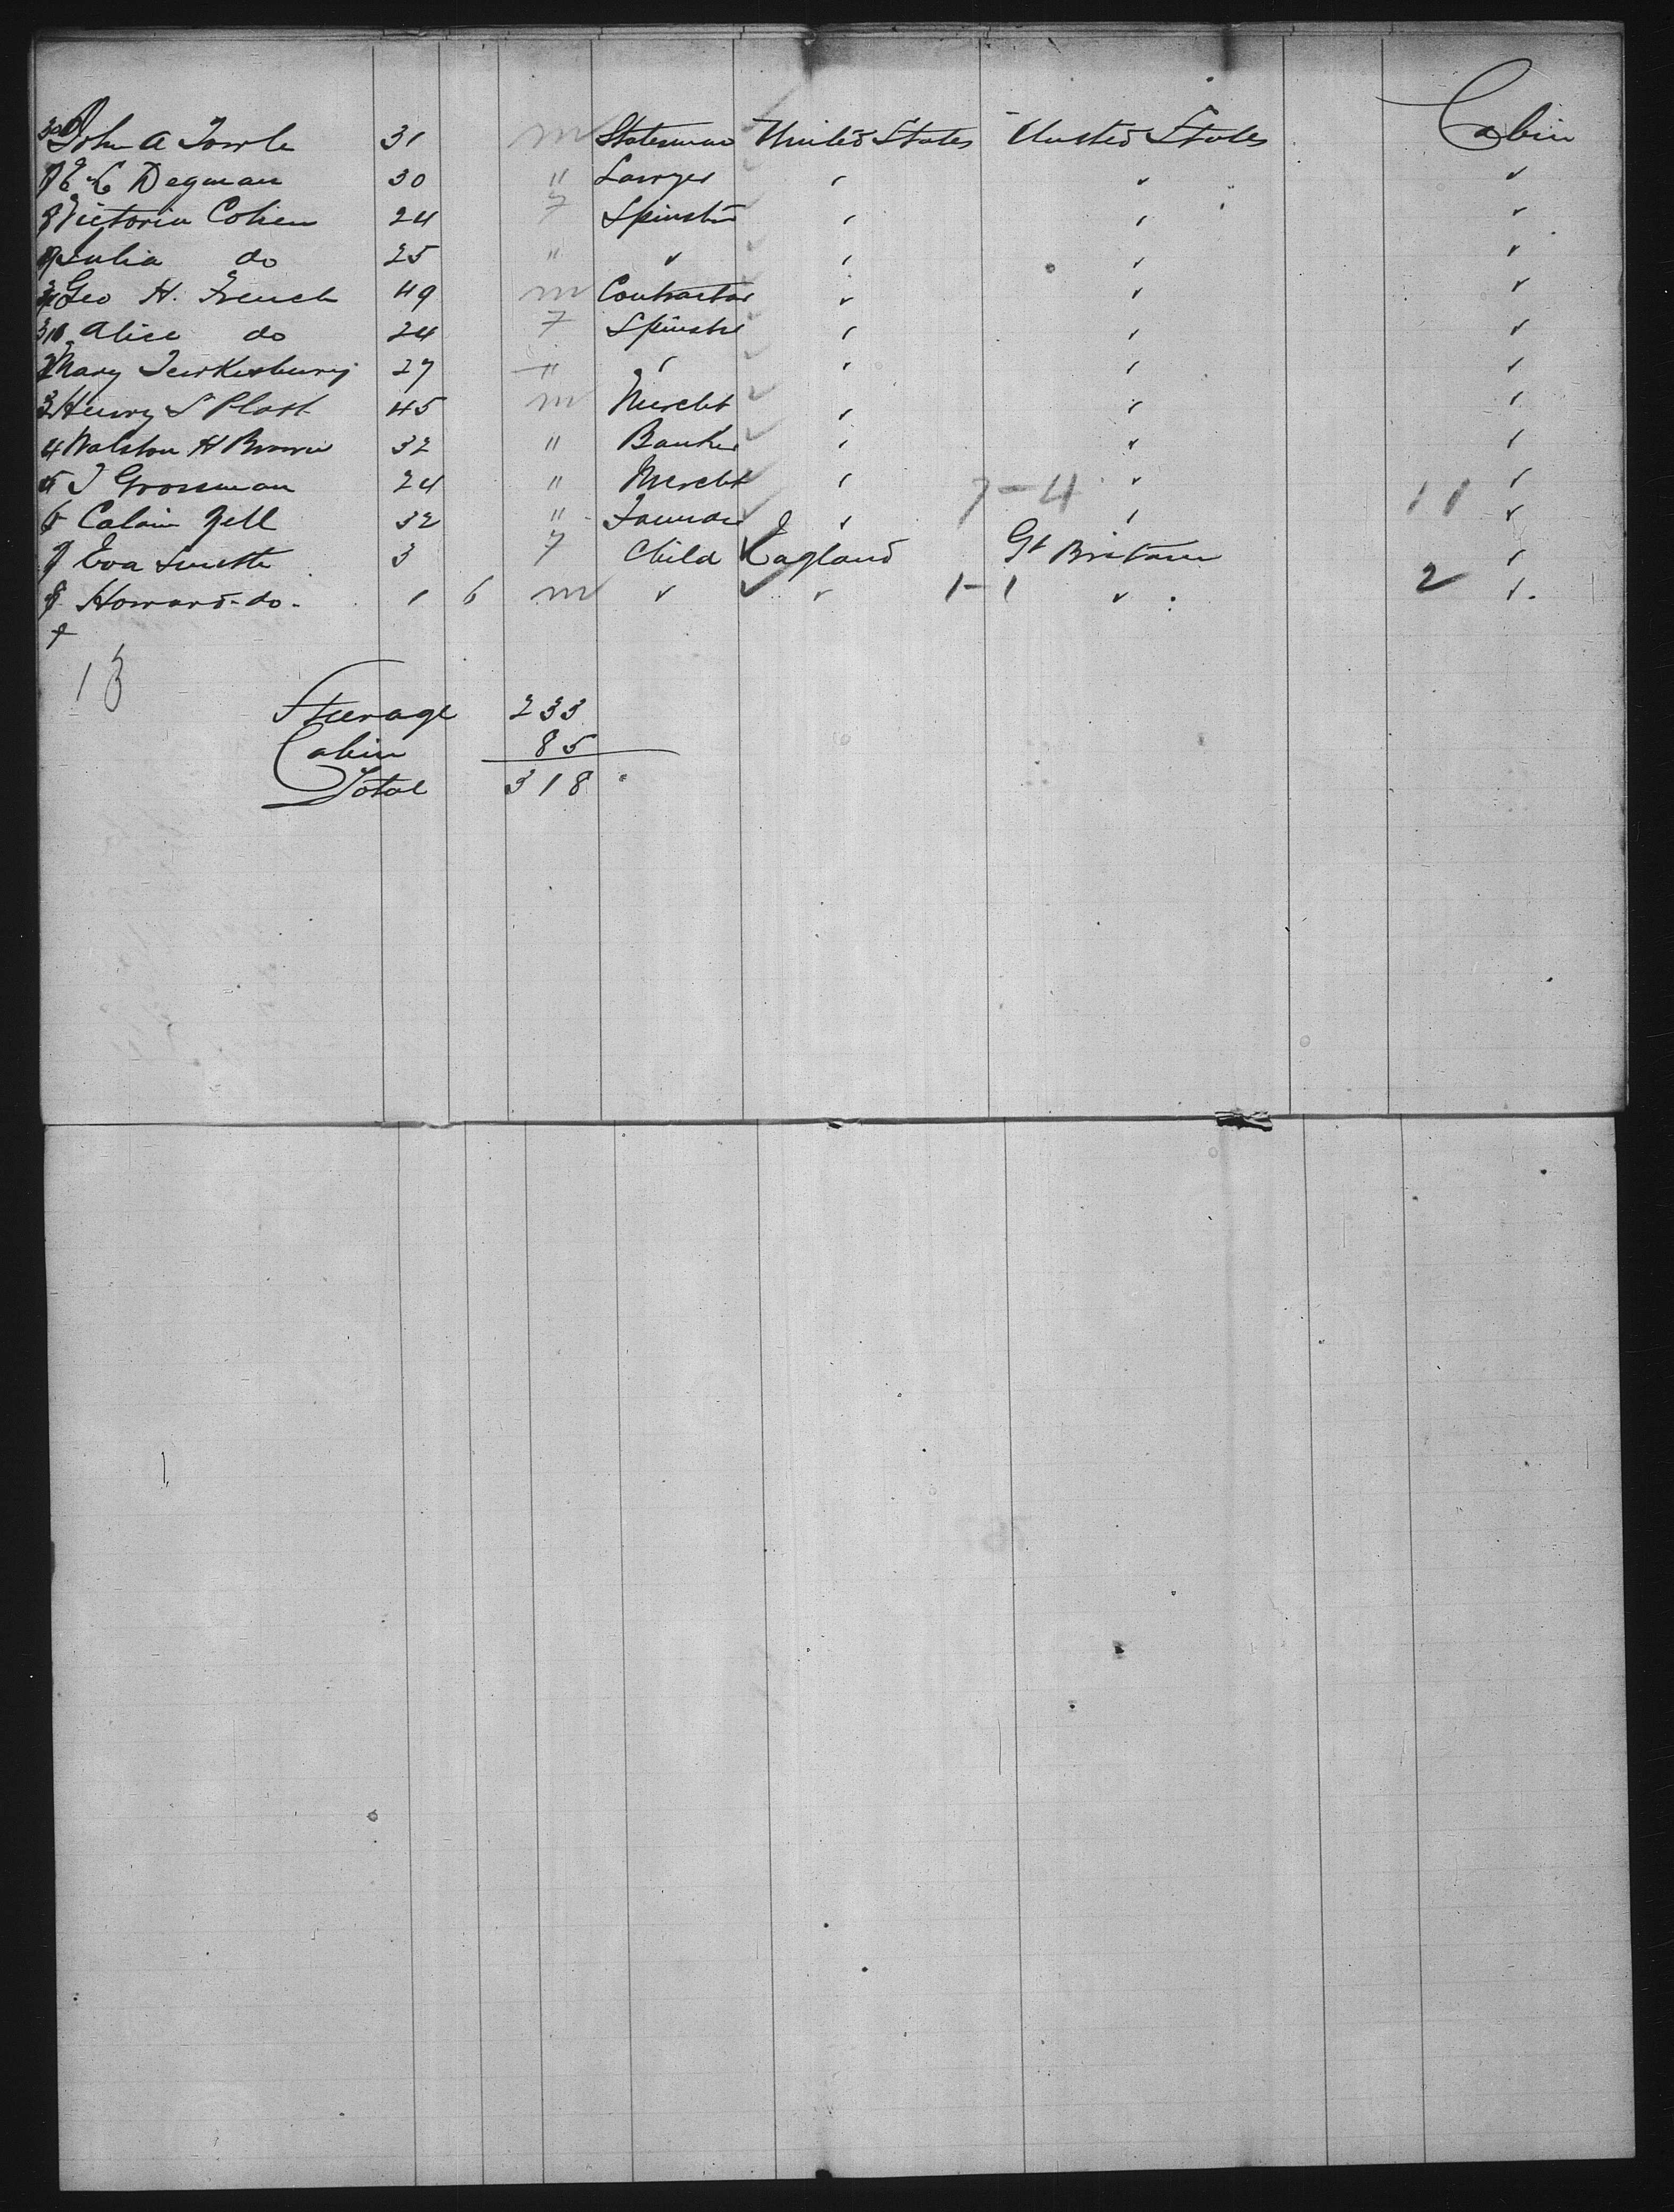 306 John A Towle 31 m Statesman United States United States Cabin
7 E C Degman 30 " Lawyer " " "
8 Victoria Cohen 24 F Spinster " " "
9 Julia do 25 " " " " "
Geo H. French 49 m Contractor " " "
310 Alice do 24 F Spinster " " "
Mary Tewkesbury 27 " " " " "
3 Henry S Plast 45 m Mercht " " "
4 Walston H Brown 32 " Banker " " "
5 I Grossman 24 " Mercht " 7-4 " 11 "
6 Calvin Zell 32 " " " "
7 Eva Smith 3 F Child England Gt Britain "
8 Howard do. 1 6 m " " 1-1 " 2 "
9
13
Steerage 233
Cabin 85
Total 318